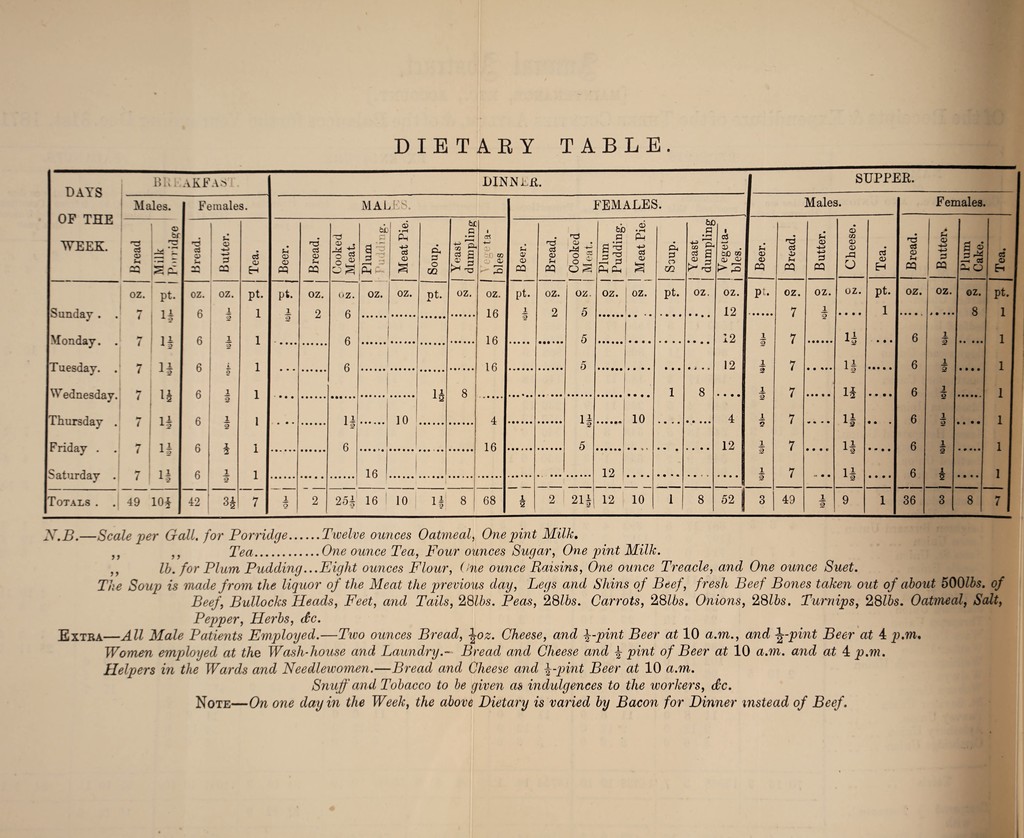 DIETARY TABLE.
DAYS OF THE WEEK. | BREAKFAST. | DINNER. | SUPPER.
Males. | Females. | MALES. | FEMALES. | Males. | Females.
Bread | Milk Porridge | Bread. | Butter. | Tea. | Beer. | Bread. | Cooked Meat. | Plum Pudding. | Meat Pie. | Soup. | Yeast dumpling | Vegeta-bles | Beer. | Bread. | Cooked Meat. | Plum Pudding. | Meat Pie. | Soup. | Yeast dumpling | Vegeta-bles. | Beer. | Bread. | Butter. | Cheese. | Tea. | Bread. | Butter. | Plum Cake. | Tea.
oz. | pt. | oz. | oz. | pt. | pt. | oz. | oz. | oz. | oz. | pt. | oz. | oz. | pt. | oz. | oz. | oz. | oz. | pt. | oz. | oz. | pt. | oz. | oz. | oz. | pt. | oz. | oz. | oz. | pt.
Sunday . . | 7 | 1½ | 6 | ½ | 1 | ½ | 2 | 6 | ...... | ...... | ...... | ...... | 16 | ½ | 2 | 5 | ...... | .... | .... | .... | 12 | ...... | 7 | ½ | .... | 1 | .... | ...... | 8 | 1
Monday. . | 7 | 1½ | 6 | ½ | 1 | ..... | ...... | 6 | ...... | ...... | ...... | ...... | 16 | ..... | ...... | 5 | ...... | ...... | .... | .... | 12 | ½ | 7 | ...... | 1½ | ... | 6 | ½ | ..... | 1
Tuesday. . | 7 | 1½ | 6 | ½ | 1 | ... | ...... | 6 | ...... | ...... | ...... | ...... | 16 | ...... | ...... | 5 | ...... | ...... | .... | .... | 12 | ½ | 7 | ..... | 1½ | ..... | 6 | ½ | .... | 1
Wednesday. | 7 | 1½ | 6 | ½ | 1 | .... | ...... | ...... | ...... | ...... | 1½ | 8 | ..... | ...... | ...... | ...... | ...... | .... | 1 | 8 | .... | ½ | 7 | .... | 1½ | ..... | 6 | ½ | ..... | 1
Thursday . | 7 | 1½ | 6 | ½ | 1 | ... | ...... | 1½ | ...... | 10 | ...... | ...... | 4 | ...... | ...... | 1½ | ...... | 10 | .... | .... | 4 | ½ | 7 | .... | 1½ | .. . | 6 | ½ | .... | 1
Friday . . | 7 | 1½ | 6 | ½ | 1 | ...... | ...... | 6 | ...... | ...... | ...... | ...... | 16 | ...... | ...... | 5 | ...... | ...... | .... | .... | 12 | ½ | 7 | .... | 1½ | .... | 6 | ½ | ..... | 1
Saturday . | 7 | 1½ | 6 | ½ | 1 | ...... | ...... | ...... | 16 | ...... | ...... | ...... | ...... | ...... | ...... | ...... | 12 | ...... | .... | .... | .... | ½ | 7 | ... | 1½ | .... | 6 | ½ | .... | 1
TOTALS . . | 49 | 10½ | 42 | 3½ | 7 | ½ | 2 | 25½ | 16 | 10 | 1½ | 8 | 68 | ½ | 2 | 21½ | 12 | 10 | 1 | 8 | 52 | 3 | 49 | ½ | 9 | 1 | 36 | 3 | 8 | 7
N.B.—Scale per Gall. for Porridge......Twelve ounces Oatmeal, One pint Milk.
,, ,, Tea............One ounce Tea, Four ounces Sugar, One pint Milk.
,, lb. for Plum Pudding...Eight ounces Flour, One ounce Raisins, One ounce Treacle, and One ounce Suet.
The Soup is made from the liquor of the Meat the previous day, Legs and Shins of Beef, fresh Beef Bones taken out of about 500lbs. of
Beef, Bullocks Heads, Feet, and Tails, 28lbs. Peas, 28lbs. Carrots, 28lbs. Onions, 28lbs. Turnips, 28lbs. Oatmeal, Salt,
Pepper, Herbs, &c.
EXTRA—All Male Patients Employed.—Two ounces Bread, ½oz. Cheese, and ½-pint Beer at 10 a.m., and ½-pint Beer at 4 p.m.
Women employed at the Wash-house and Laundry.— Bread and Cheese and ½ pint of Beer at 10 a.m. and at 4 p.m.
Helpers in the Wards and Needlewomen.—Bread and Cheese and ½-pint Beer at 10 a.m.
Snuff and Tobacco to be given as indulgences to the workers, &c.
NOTE—On one day in the Week, the above Dietary is varied by Bacon for Dinner instead of Beef.